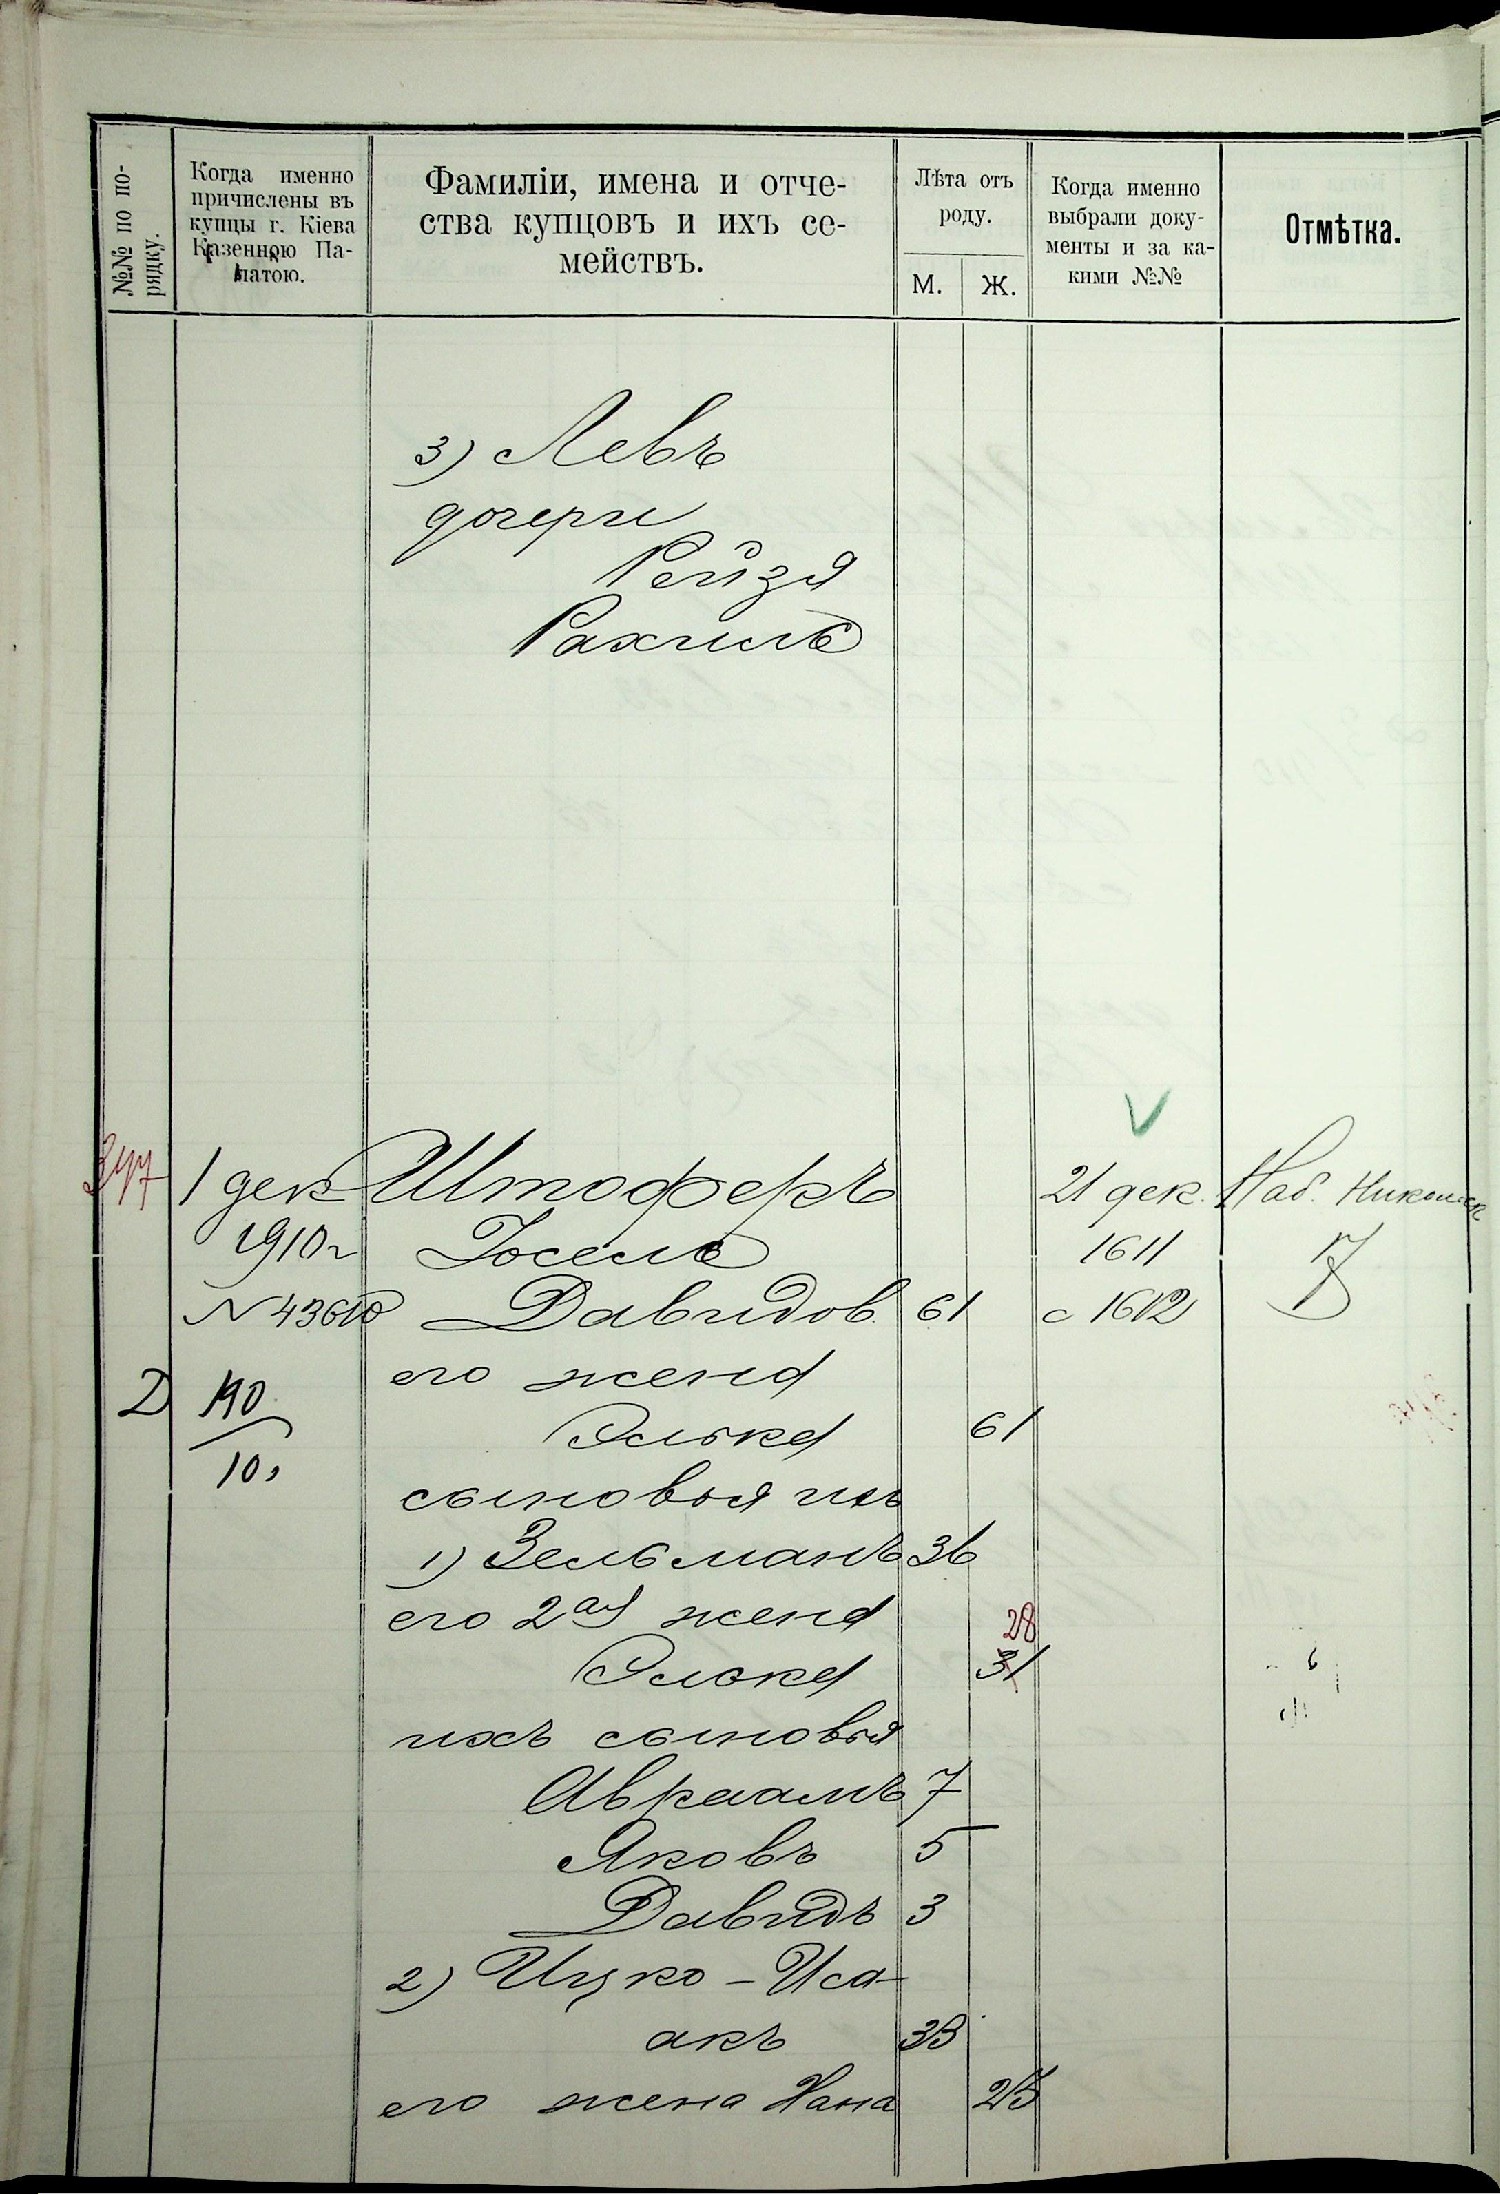 №№ по по-
рядку.
Когда именно
причислены въ
купцы г. Кіева
Казенною Па-
латою.
Фамиліи, имена и отче-
ства купцовъ и ихъ се-
мействъ.
Лѣта отъ
роду.
М. Ж.
Когда именно
выбрали доку-
менты и за ка-
кими №№
Отмѣтка.
3) Левъ
дочери
Рейзя
Рахиль
347 1 дек Штоферъ 21 дек. Наб. Никольск
1910 г Іосель 1611 7
N 43610 Давидов. 61 с 1612
его жена
D 190 Элька 61
10,
сыновья ихъ
1) Зельманъ 36
его 2ая жена 28
Элька 31
ихъ сыновья
Авраамъ 7
Яковъ 5
Давидъ 3
2) Ицко-Иса-
акъ 33
его жена Хана 25